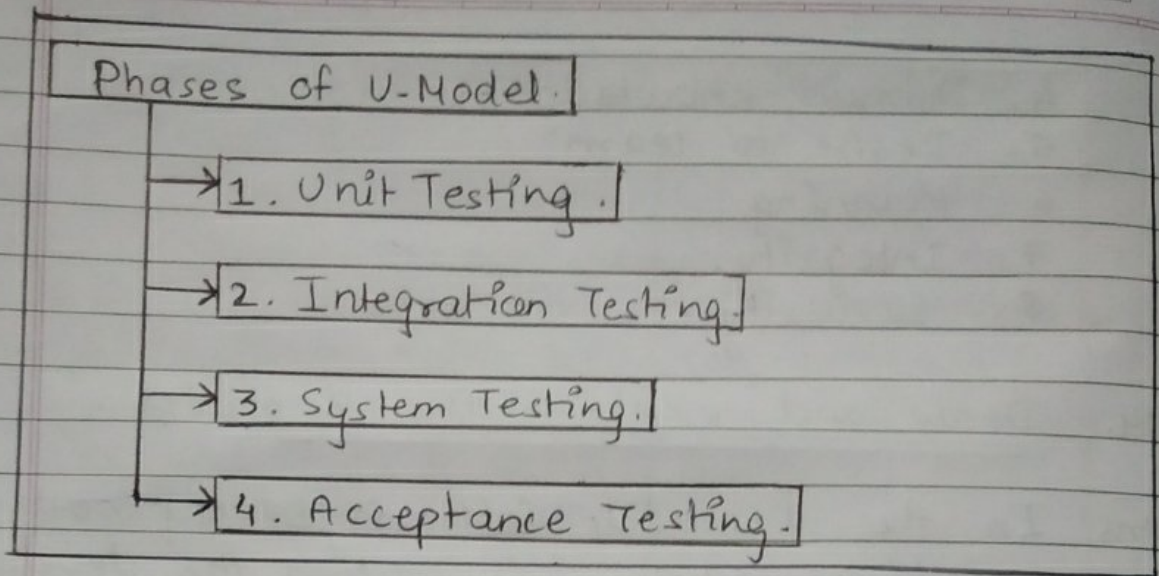 Phases of V-Model.
1. Unit Testing.
2. Integration Testing.
3. System Testing.
4. Acceptance Testing.